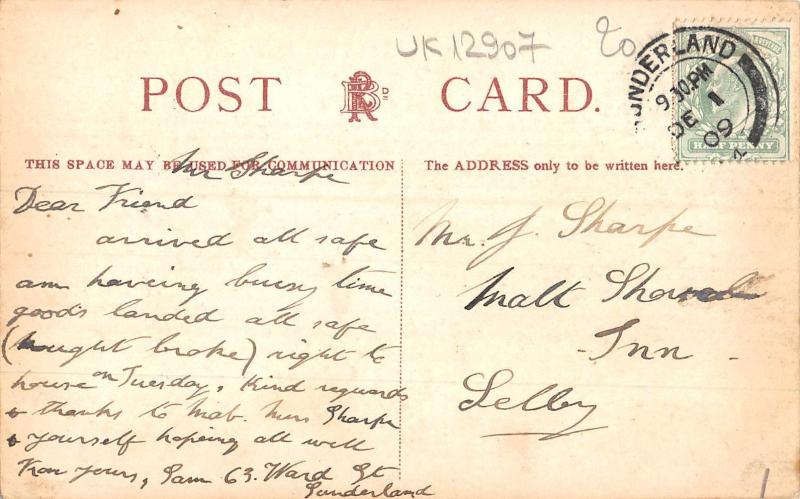 UK 12907
20
POST CARD.
SUNDERLAND
9.30 PM
DE 1
09
HALF PENNY
THIS SPACE MAY BE USED FOR COMMUNICATION
The ADDRESS only to be written here.
Mr Sharpe
Dear Friend
arrived all safe
am haveing buisy time
goods landed all safe
(nought broke) right to
house on Tuesday, Kind reguards
& thanks to Mab. Mrs Sharpe
& yourself hopeing all well
from yours, Sam 63. Ward St
Sunderland
Mr. J. Sharpe
Malt Shovel
Inn
Selby
1